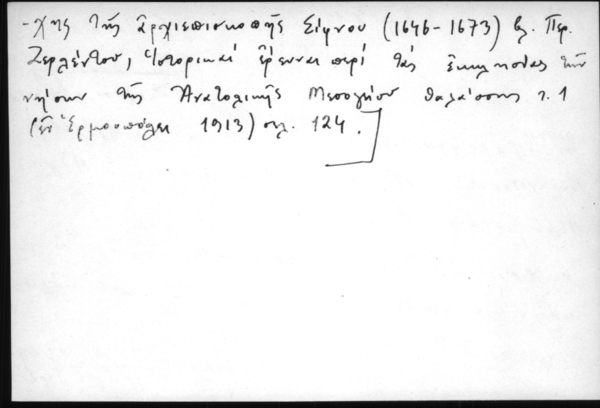 -χης τῆς ἀρχιεπισκοπῆς Σίφνου (1646-1673) βλ. Περ.
Ζερλέντου, Ἱστορικαί ἔρευναι περί τάς ἐκκλησίας τῶν
νήσων τῆς Ἀνατολικῆς Μεσογείου θαλάσσης τ. 1
(ἐν Ἑρμουπόλει 1913) σελ. 124.]